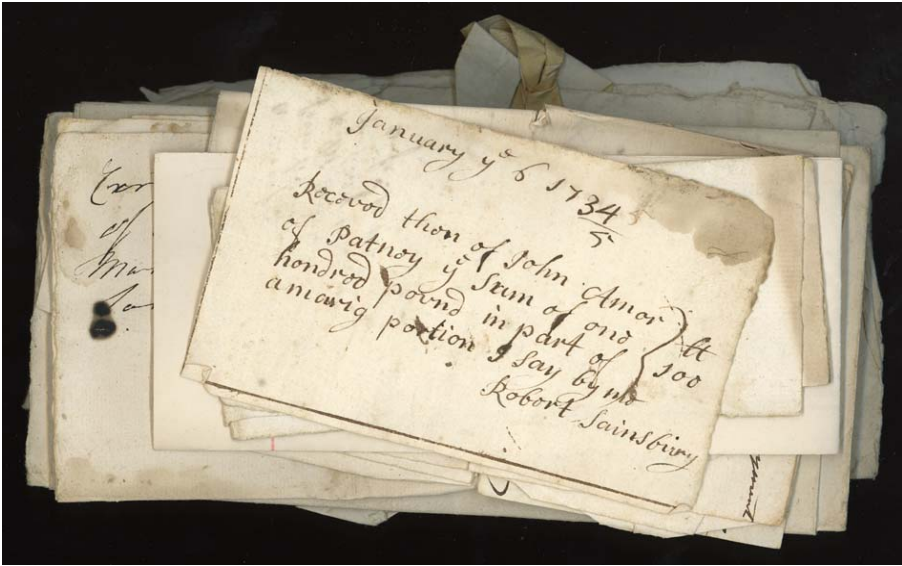 January ye 6 1734/5
Receved then of John Amor
of Patney ye Sum of one
hondred pound in part of
amarig portion I say by me
lt
100
Robort Sainsbury
of